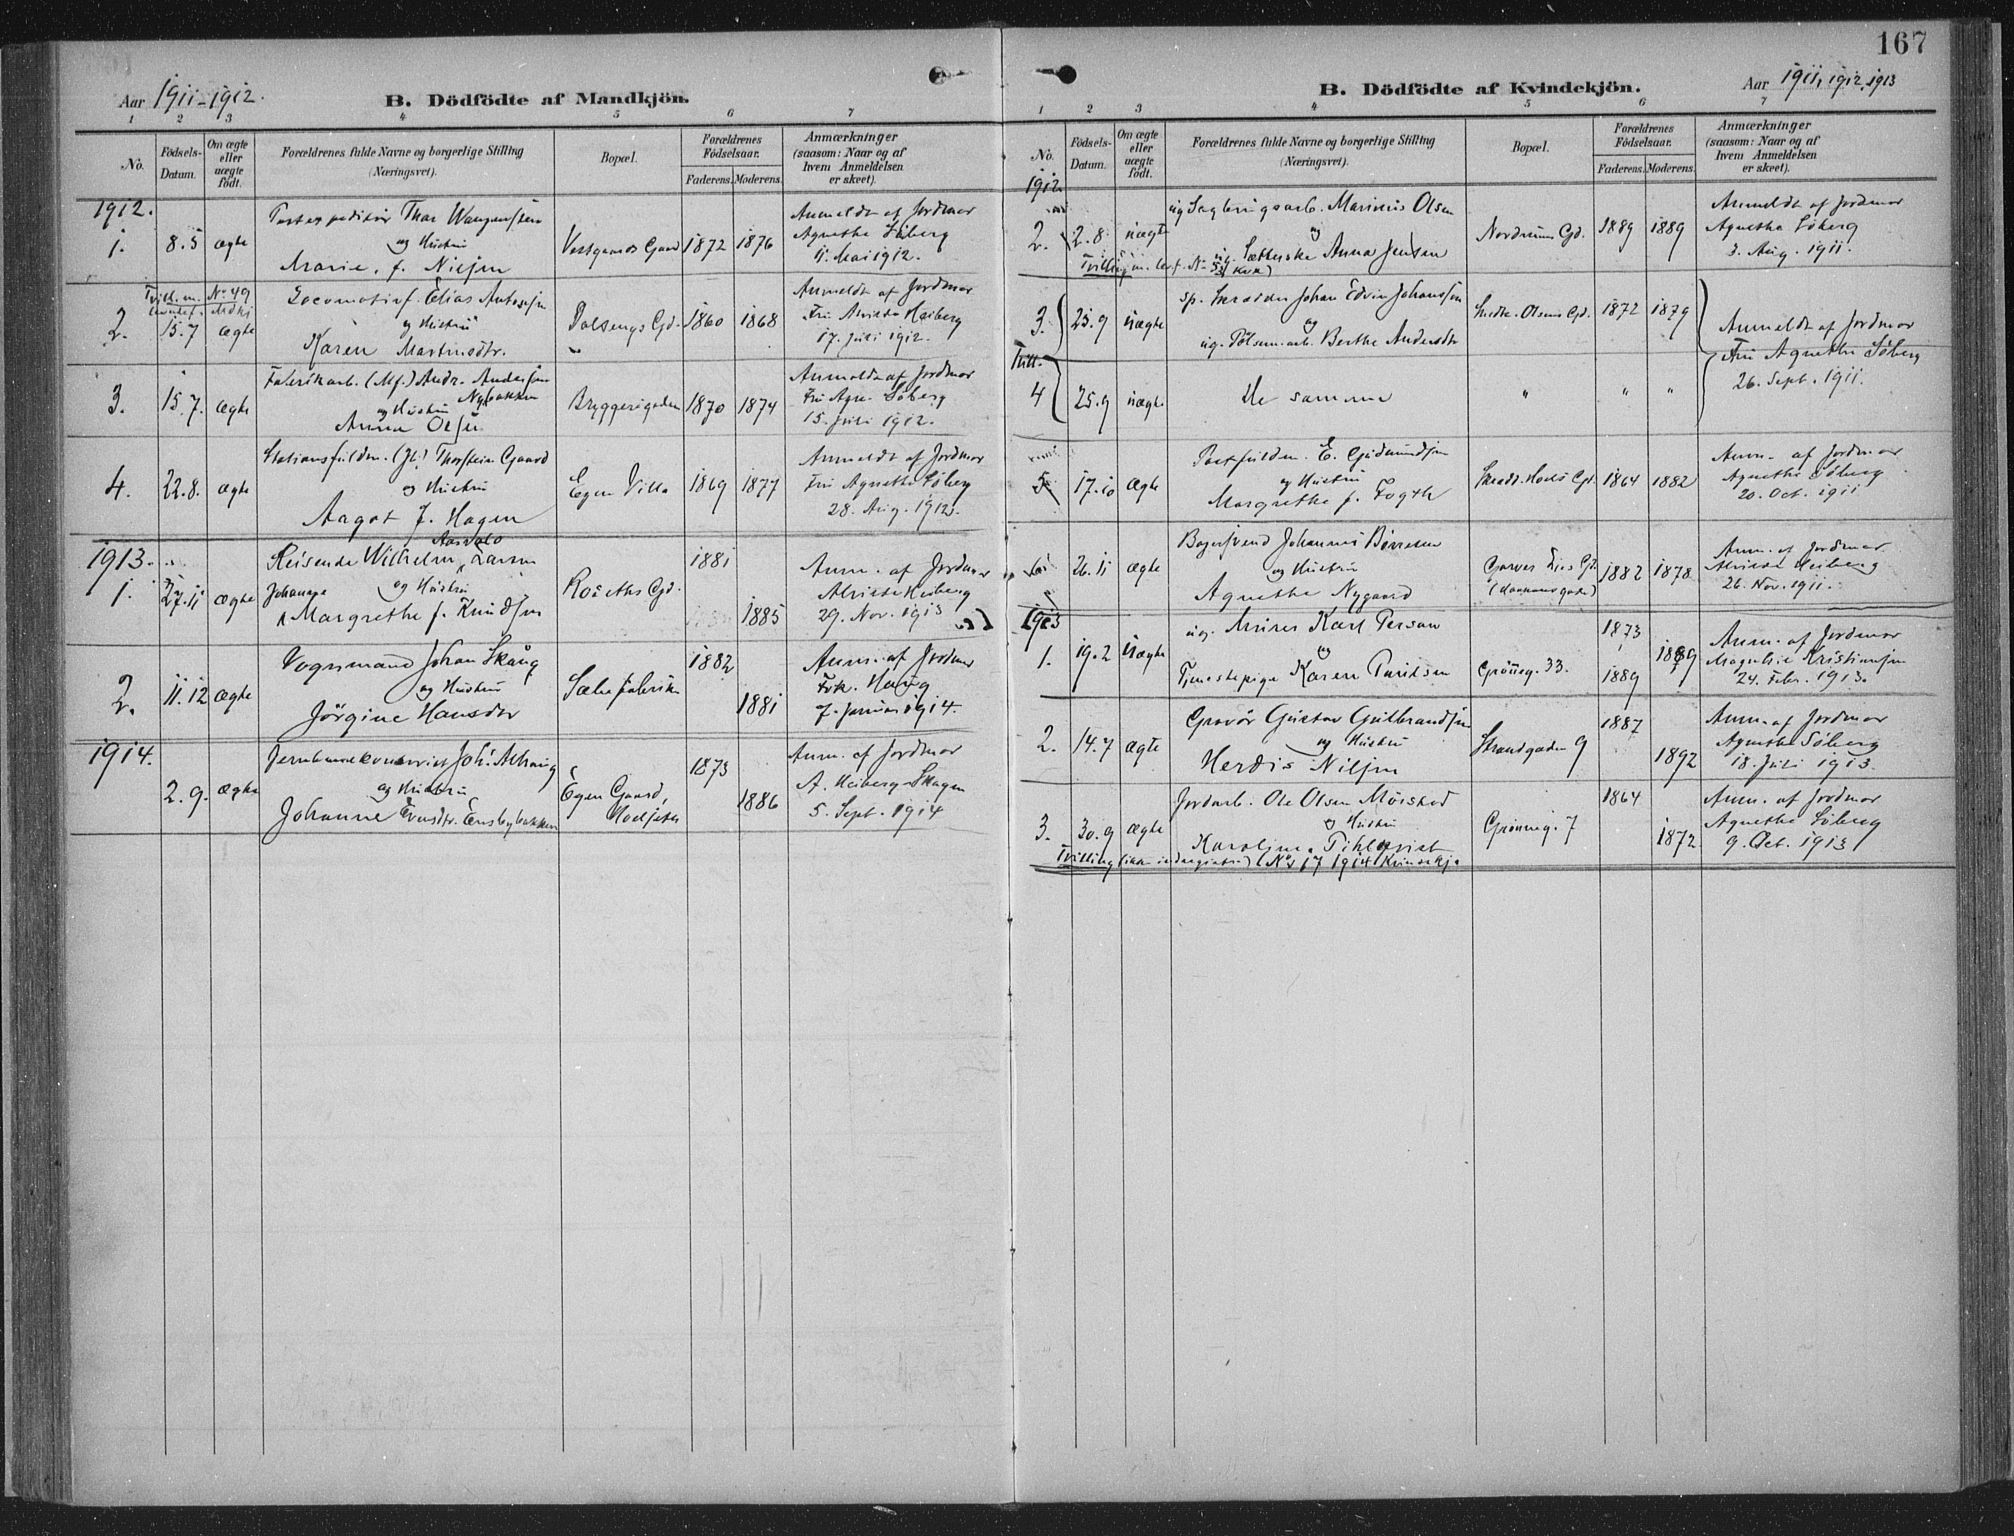 Aar 1911-1912.
B. Dödfödte af Mandkjön.
1 2 3 4 5 6 7
No.
Födsels-Datum.
Om ægte eller uægte födt.
Forældrenes fulde Navne og borgerlige Stilling (Næringsvei).
Bopæl.
Forældrenes Födselsaar.
Faderens. Moderens.
Anmærkninger (saasom: Naar og af hvem Anmeldelsen er skeet).
1912.
1. 8.5 ægte
Postexpeditör Thor Wangensteen
og Hustru
Marie, f. Nielsen
Vestgaards Gaard 1872 1876
Anmeldt af Jordmor
Agnethe Söberg
11. Mai 1912.
Tvill. m. No 49
levendef. Mdkj
2. 15.7 ægte
Locomotivf. Elias Antonsen
og Hustru
Karen Martinsdtr.
Dalsengs Gd. 1860 1868
Anmeldt af Jordmor
Fru Alvilde Heiberg
17. Juli 1912.
3. 15.7. ægte
Fabrikarb. (Mf.) Andr. Andersen
og Hustru Nybakken
Anna Olsen
Bryggerigaden 1870 1874
Anmeldt af Jordmor
Fru Agn. Söberg
15. Juli 1912.
4. 22.8. ægte
Stationsfuldm. Thorstein Gaard
og Hustru
Aagot f. Hagen
Egen Villa 1869 1877
Anmeldt af Jordmor
Fru Agnethe Söberg
28. Aug. 1912.
1913.
1. 27.11 ægte
Reisende Wilhelm Larsen
Johanne og Hustru
Margrethe f. Knudsen
Gd. 1881 1885
Anm. af Jordmor
Alvilde Heiberg
29. Nov. 1913
2. 11.12 ægte
Vognmand Johan Skaug
og Hustru
Jörgine Hansdtr
Sæbefabriken 1882 1881
Anm. af Jordmor
Frk. Haug
7. Januar 1914.
1914.
2.9. ægte
Joh. Alhaug
og Hustru
Johanne Evensdtr. Ensbybakken
Egen Gaard, 1873 1886
Anm. af Jordmor
A. Heiberg-Skagen
5. Sept. 1914
167
Aar 1911, 1912, 1913
B. Dödfödte af Kvindekjön.
1 2 3 4 5 6 7
No.
Födsels-Datum.
Om ægte eller uægte födt.
Forældrenes fulde Navne og borgerlige Stilling (Næringsvei).
Bopæl.
Forældrenes Födselsaar.
Faderens. Moderens.
Anmærkninger (saasom: Naar og af hvem Anmeldelsen er skeet).
1912
2. 2.8. uægte
ug Marinius Olsen
og
ug. Anna Jensen
Nordrums Gd. 1889 1889
Anmeldt af Jordmor
Agnethe Söberg
3. Aug. 1911.
3. 25.9 uægte
Johan Edvin Johanssen
og
ug. Pölsem.arb. Berthe Andersdtr
Olsens Gd. 1872 1879
Anmeldt af Jordmor
Fru Agnethe Söberg
26. Sept. 1911.
Tvill.
4 25.9 uægte
De samme
" " "
5 17.10 ægte
Postfuldm. E. Gudmundsen
og Hustru
Margrethe f. Fogth
Gd. 1864 1882
Anm. af Jordmor
Agnethe Söberg
20. Oct. 1911
6 26.11 ægte
Bagersvend Johannes Börresen
og Hustru
Agnethe Nygaard
Garver Lies Gd. 1882 1878
Anm. af Jordmor
Alvilde Heiberg
26. Nov. 1911.
1913
1. 19.2 uægte
ug. Murer Karl Person
og
Tjenestepige Karen Paulsen
Grönneg. 33. 1873 1889 1889
Anm. af Jordmor
Magnhil Kristiansen
24. Febr. 1913.
2. 14.7 ægte
Gravör Gustav Gulbrandsen
og Hustru
Herdis Nilsen
Strandgaden 9 1887 1892
Anm. af Jordmor
Agnethe Söberg
18. Juli 1913.
3. 30.9 ægte
Jordarb. Ole Olsen Mörstad
og Hustru
Karoline Pihlqvist
Grönneg. 7 1864 1872
Anm. af Jordmor
Agnethe Söberg
9. Oct. 1913
Tvilling (ikke indregistr.) (No 17 1914 Kvindekj.